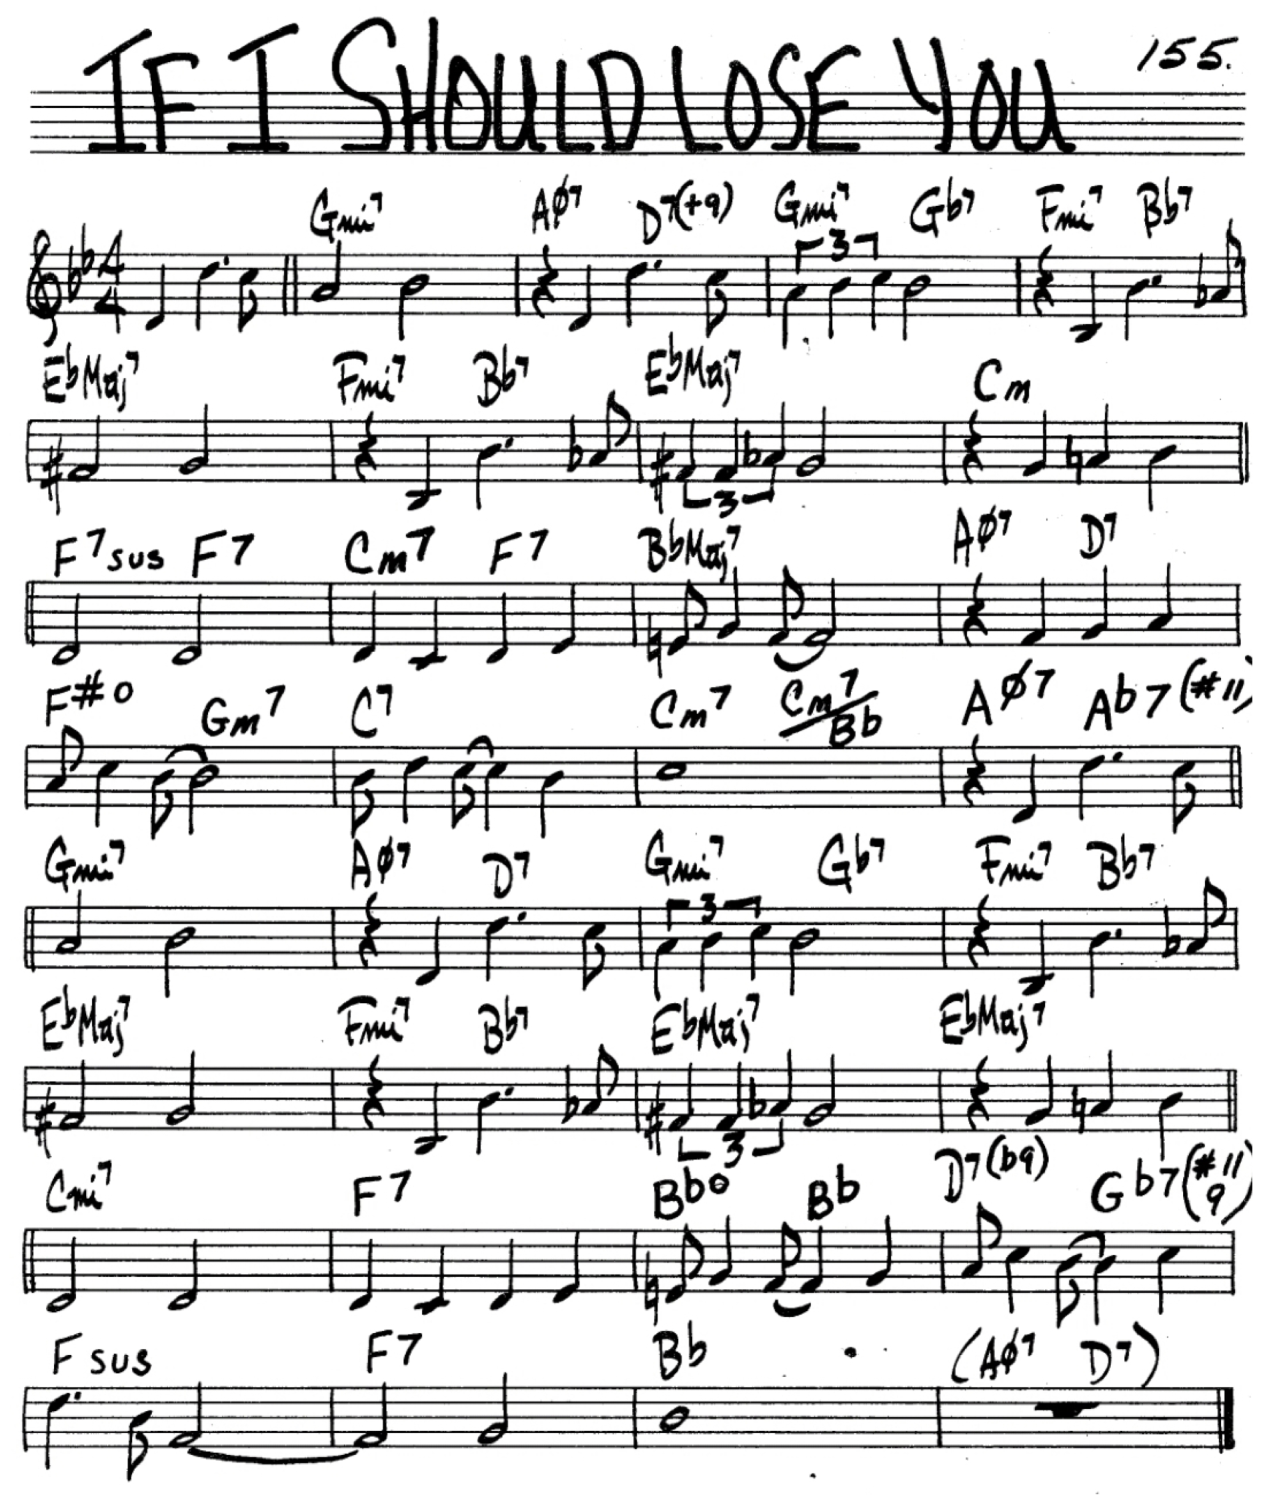 IF I SHOULD LOSE YOU 155.
Gmi7 AØ7 D7(+9) Gmi7 Gb7 Fmi7 Bb7
3
4
4
EbMaj7 Fmi7 Bb7 EbMaj7 Cm
3
F7sus F7 Cm7 F7 BbMaj7 AØ7 D7
F#o Gm7 C7 Cm7 Cm7/Bb AØ7 Ab7(#11)
Gmi7 AØ7 D7 Gmi7 Gb7 Fmi7 Bb7
3
EbMaj7 Fmi7 Bb7 EbMaj7 EbMaj7
3
Cmi7 F7 Bbo Bb D7(b9) Gb7(#11 9)
F sus F7 Bb (AØ7 D7)